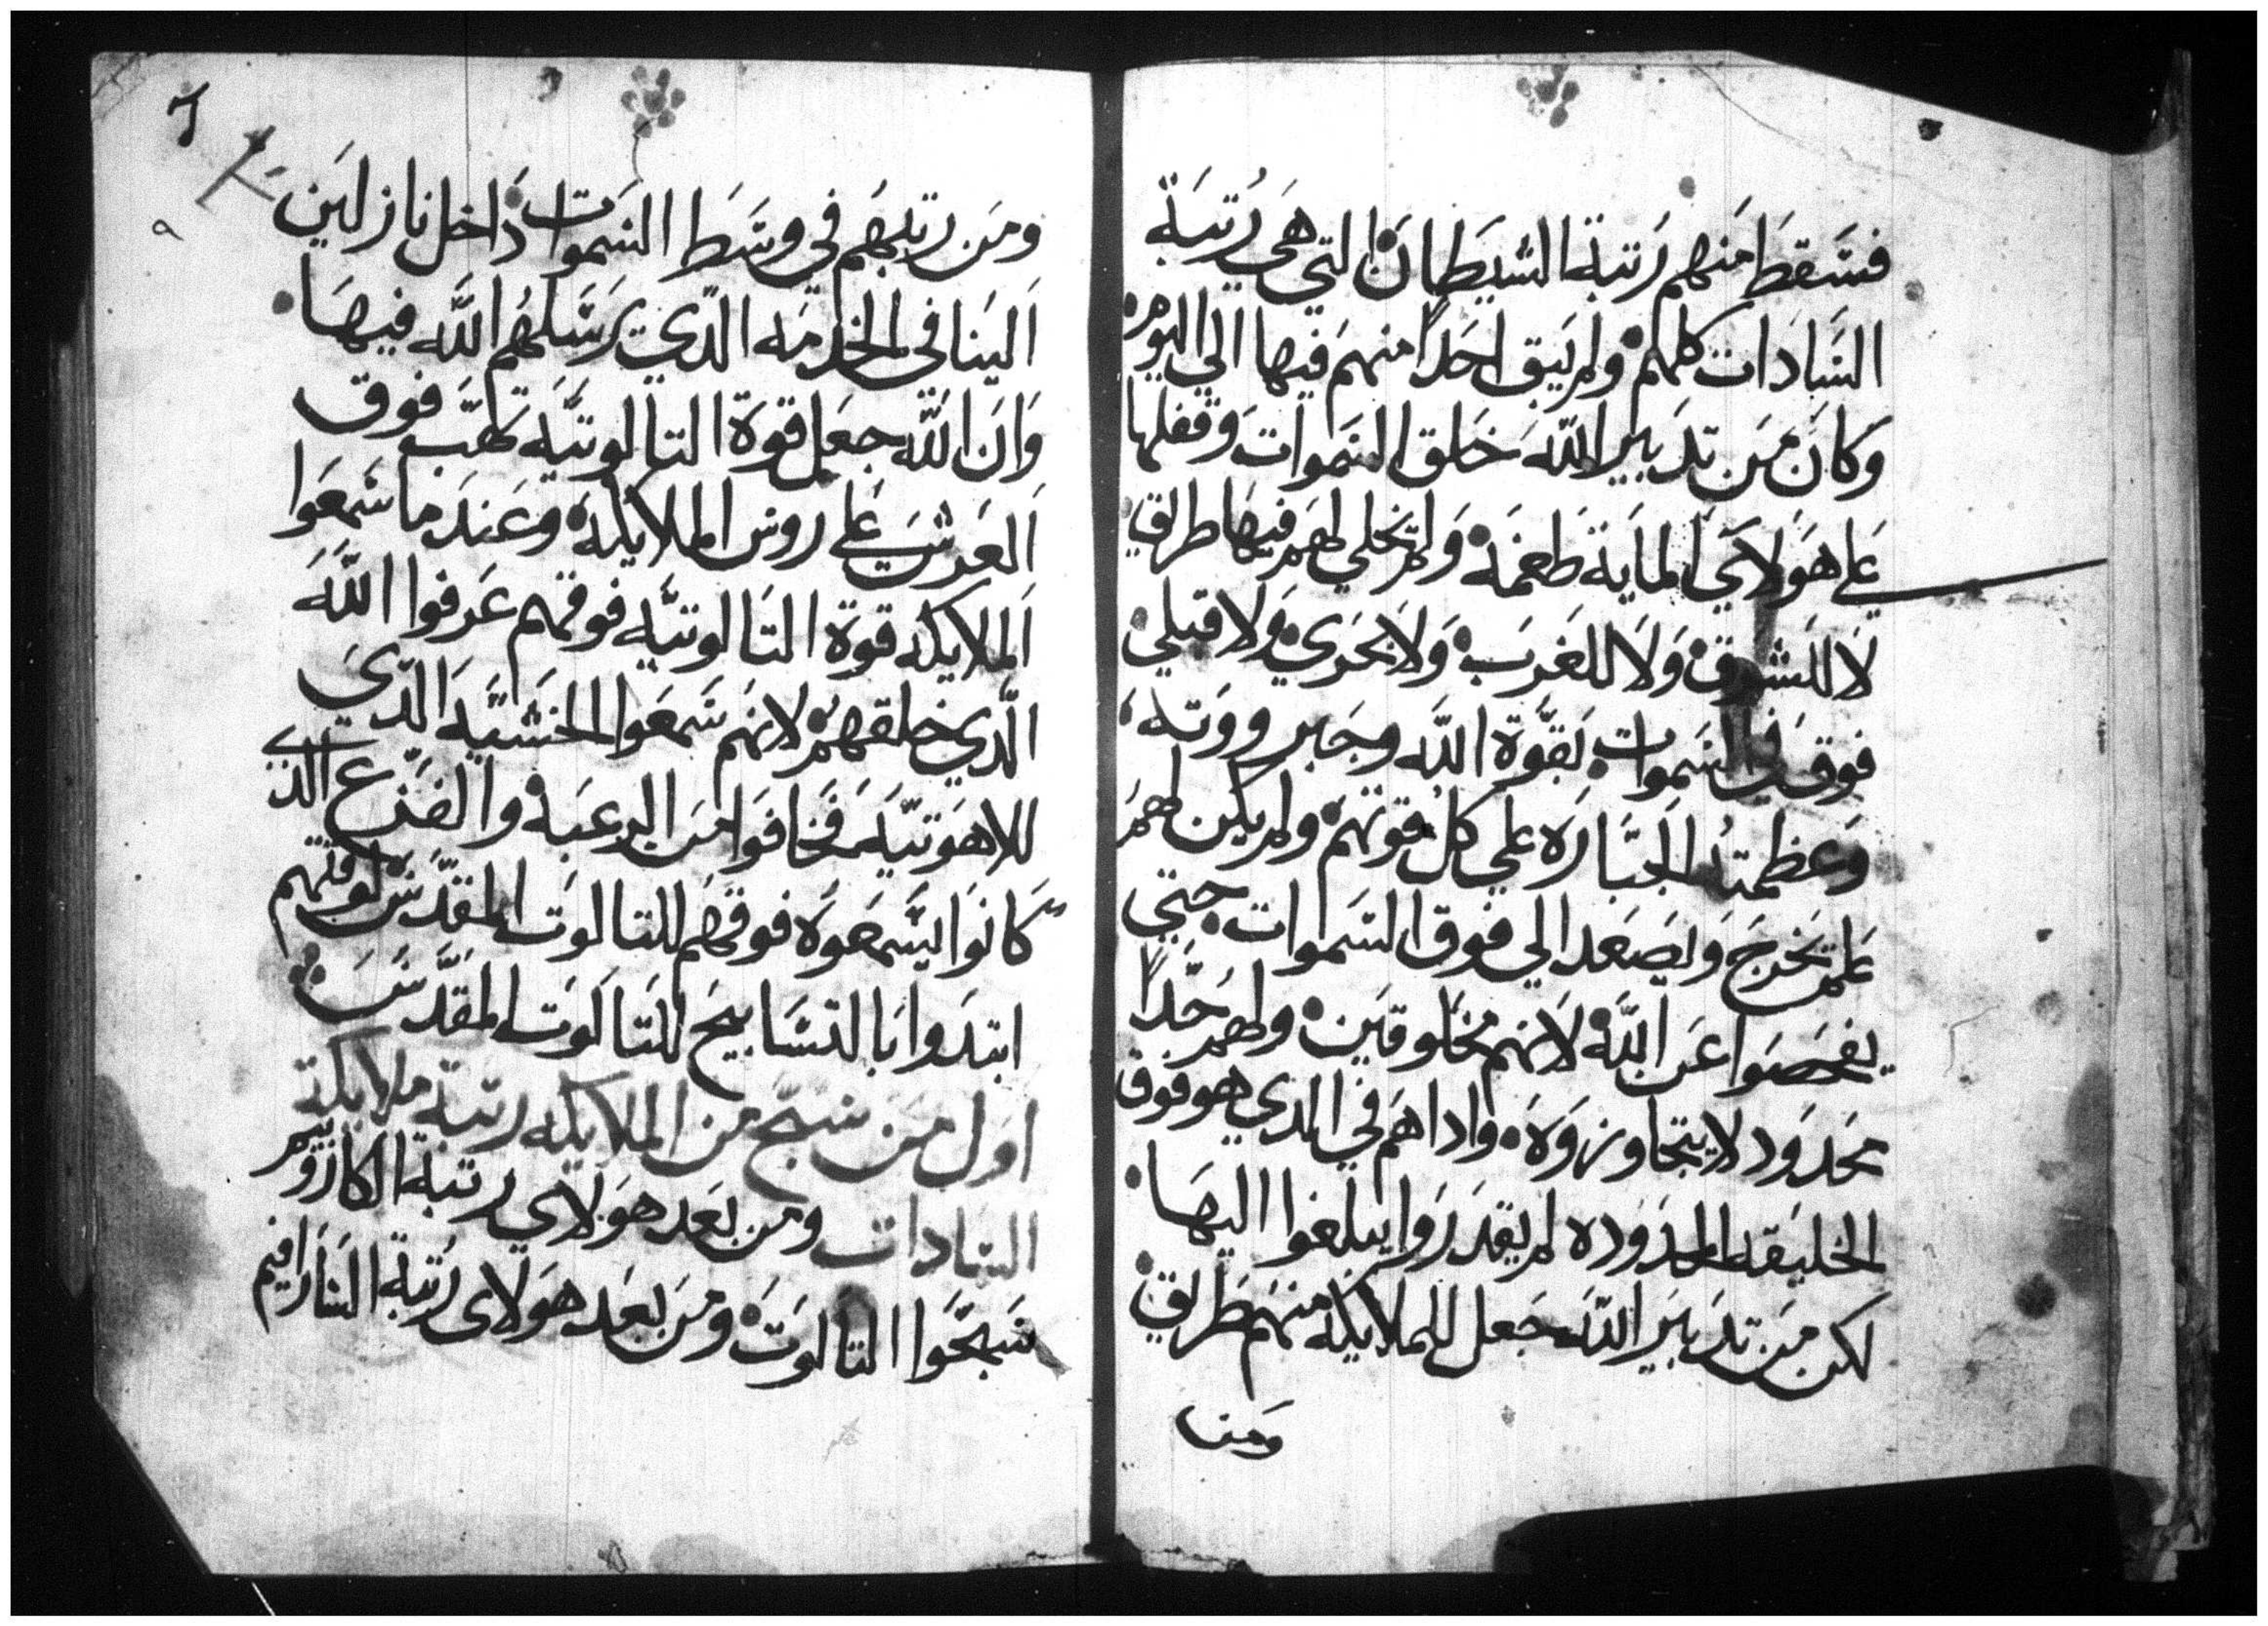 فسَقط منهم رَتبة الشيَطان التي هَي رُتبَة
السَّادَات كلهم ولم يَبق احَدًا منهمَ فيها الي اليوم
وَكانَ مَن تدَبير اللّه خَلق السَموات وَقفلها
عَلي هَولاي الماية طَغمَة وَلم تخلي لهم فيهَا طريق
لاَ للَشرق وَلاَ للغَربَ وَلاَ بحَري وَلا قبلي
فوق في السَموات بَقوَّة اللَّه وجَبر ووَته
وَعظمتهُ الجَبَّارَه علي كل قوتهمَ ولم يكن لهمَ
يخرجَ وَيصَعد الي فوق السَموات حتي
يفحصَوا عَن اللَّه لاَنهم مخلوقَين ولهم حَدًّا
محَدوَد لا يتجاوزوَهَ واداهَم في الدي هو فوق
الخليَقه المحدوَده لم يقدَرَوا يبلغوا اليهَا
لكن مَن تدَبيَر اللّه جَعل للملايكه منهَم طَريق
ومَن
٦
ومَن رتبهُم في وسَط السَموات دَاخل نازلين
اَلينَا في الخدمَه الدّي يَرسَلهُم اللَّه فيهَا
وَان اللَّه جعَل قوَة التالوتيَّه فوق
اَلعَرش عَلي روس الملايكه وعَندَ ما سَمعَوا
اَلملايكه قوَة التَالوتيَّه فوقهم عَرفوا اللَّهَ
الَّدي خلقهم لانهَم سَمعَوا الخشَيَّه الدّيَ
للاهَوتيَّه فخَافوَا مَن الرعبَه والفزَع الدي
كَانوَا يسَّمعَوهَ فوقهَم للتالوَت المقدَّس
ابتدَوا بَا التسَابيحَ للتَالَوَت المقدَّسَ
اوَل مَن سَبّح من الملايكه رتبة ملايكة
السَادات ومن بعَد هوَلاي رتبة الكاروبيم
سَبحَّوا التالوَتَ ومَن بعَد هوَلاي رُتبة السَارافيم